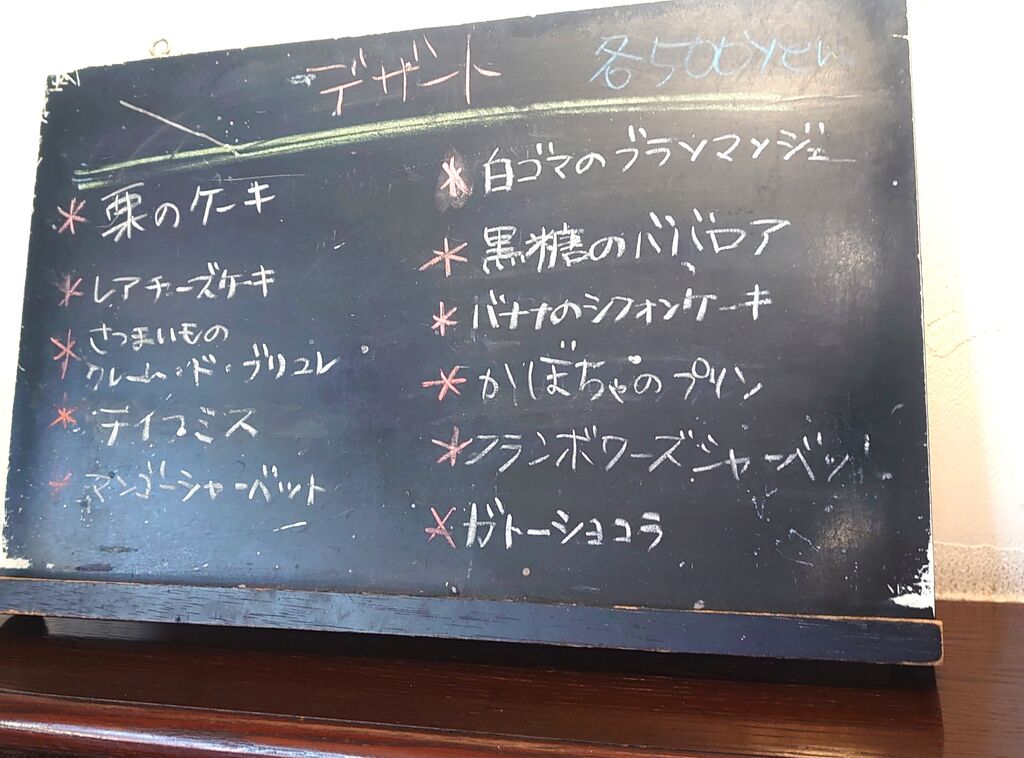 デザート
各500yen
*栗のケーキ
*レアチーズケーキ
*さつまいもの
クレーム・ド・ブリュレ
*ティラミス
*マンゴーシャーベット
*白ゴマのブランマンジェ
*黒糖のババロア
*バナナのシフォンケーキ
*かぼちゃのプリン
*フランボワーズシャーベット
*ガトーショコラ